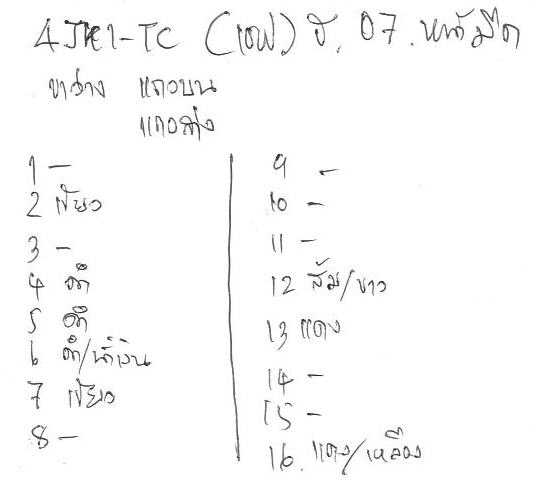 4JK1-TC (เอฟ) ปี. 07. หน้ามืด
ขาว่าง แถวบน
แถวล่าง
1 –
2 เขียว
3 –
4 ดำ
5 ดำ
6 ดำ/น้ำเงิน
7 เขียว
8 –
9 –
10 –
11 –
12 ส้ม/ขาว
13 แดง
14 –
15 –
16. แดง/เหลือง